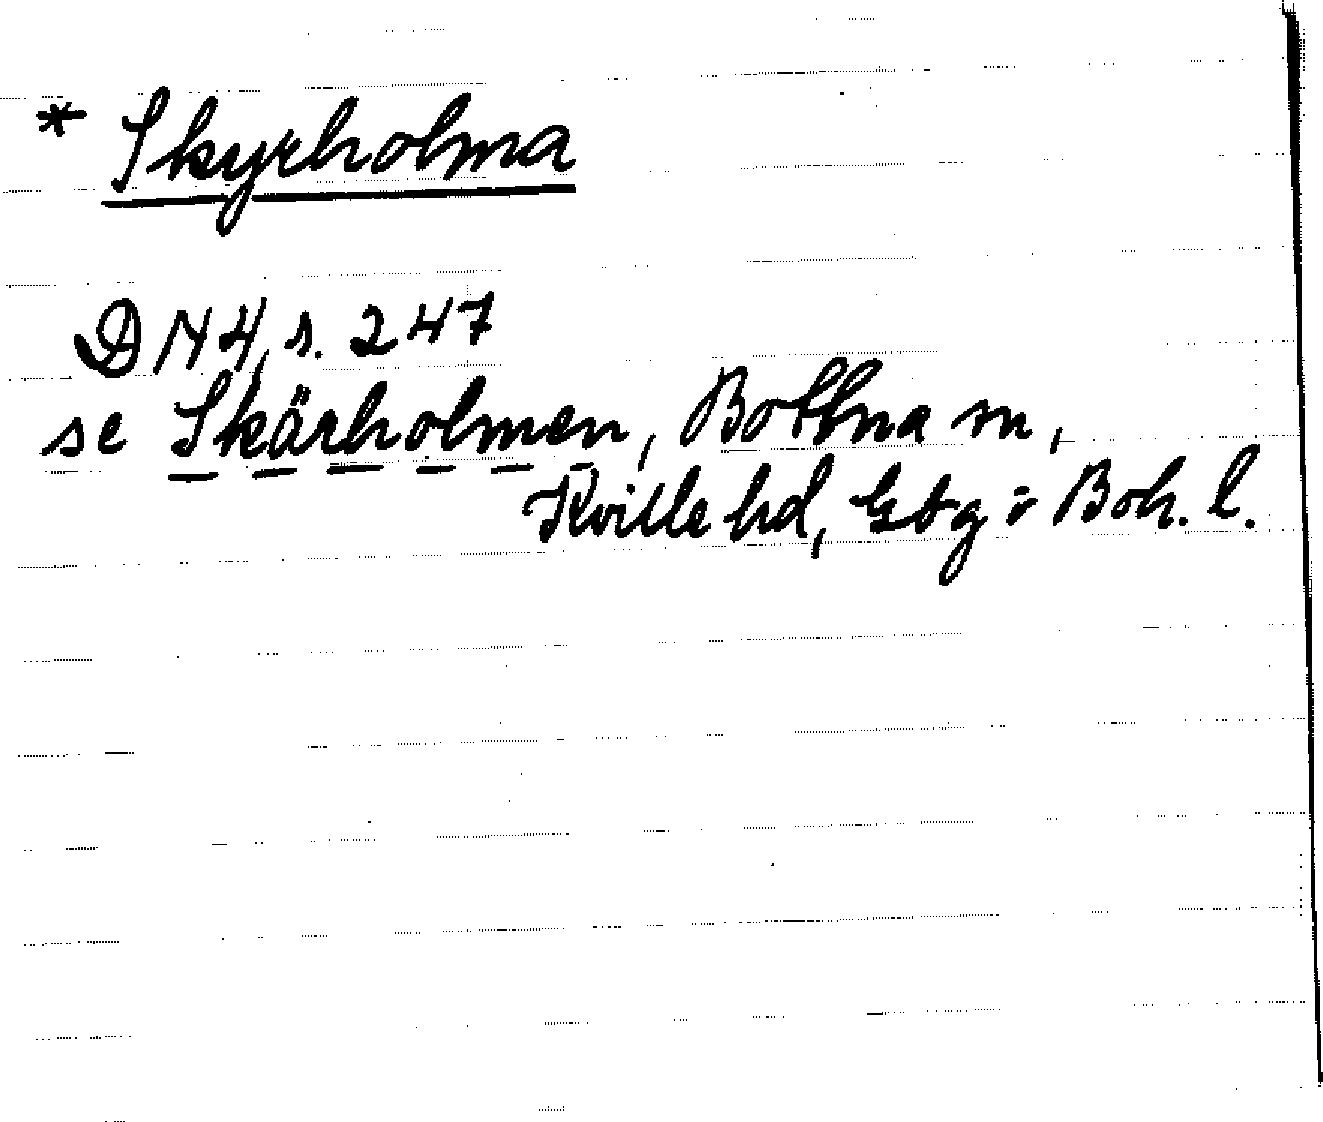 * Skyrholma
DN 4, s. 247
se Skärholmen, Bottna sn,
Kville hd, Gbg o Boh. l.